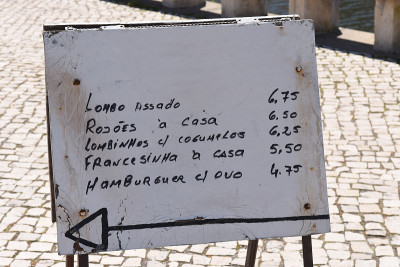 Lombo Assado 6,75
Rojões à casa 6,50
Lombinhos c/ cogumelos 6,25
Francesinha à casa 5,50
Hamburguer c/ ovo 4,75